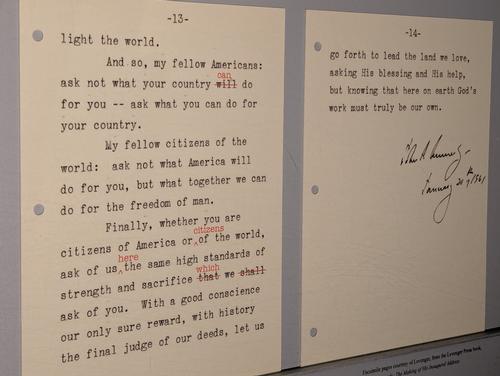 -13-
light the world.
And so, my fellow Americans:
can
ask not what your country will do
for you -- ask what you can do for
your country.
My fellow citizens of the
world: ask not what America will
do for you, but what together we can
do for the freedom of man.
Finally, whether you are
citizens
citizens of America or ^ of the world,
here
ask of us ^ the same high standards of
which
strength and sacrifice that we shall
ask of you. With a good conscience
our only sure reward, with history
the final judge of our deeds, let us
-14-
go forth to lead the land we love,
asking His blessing and His help,
but knowing that here on earth God's
work must truly be our own.
January 20th 1961
Facsimile pages courtesy of Levenger, from the Levenger Press book,
The Making of His Inaugural Address